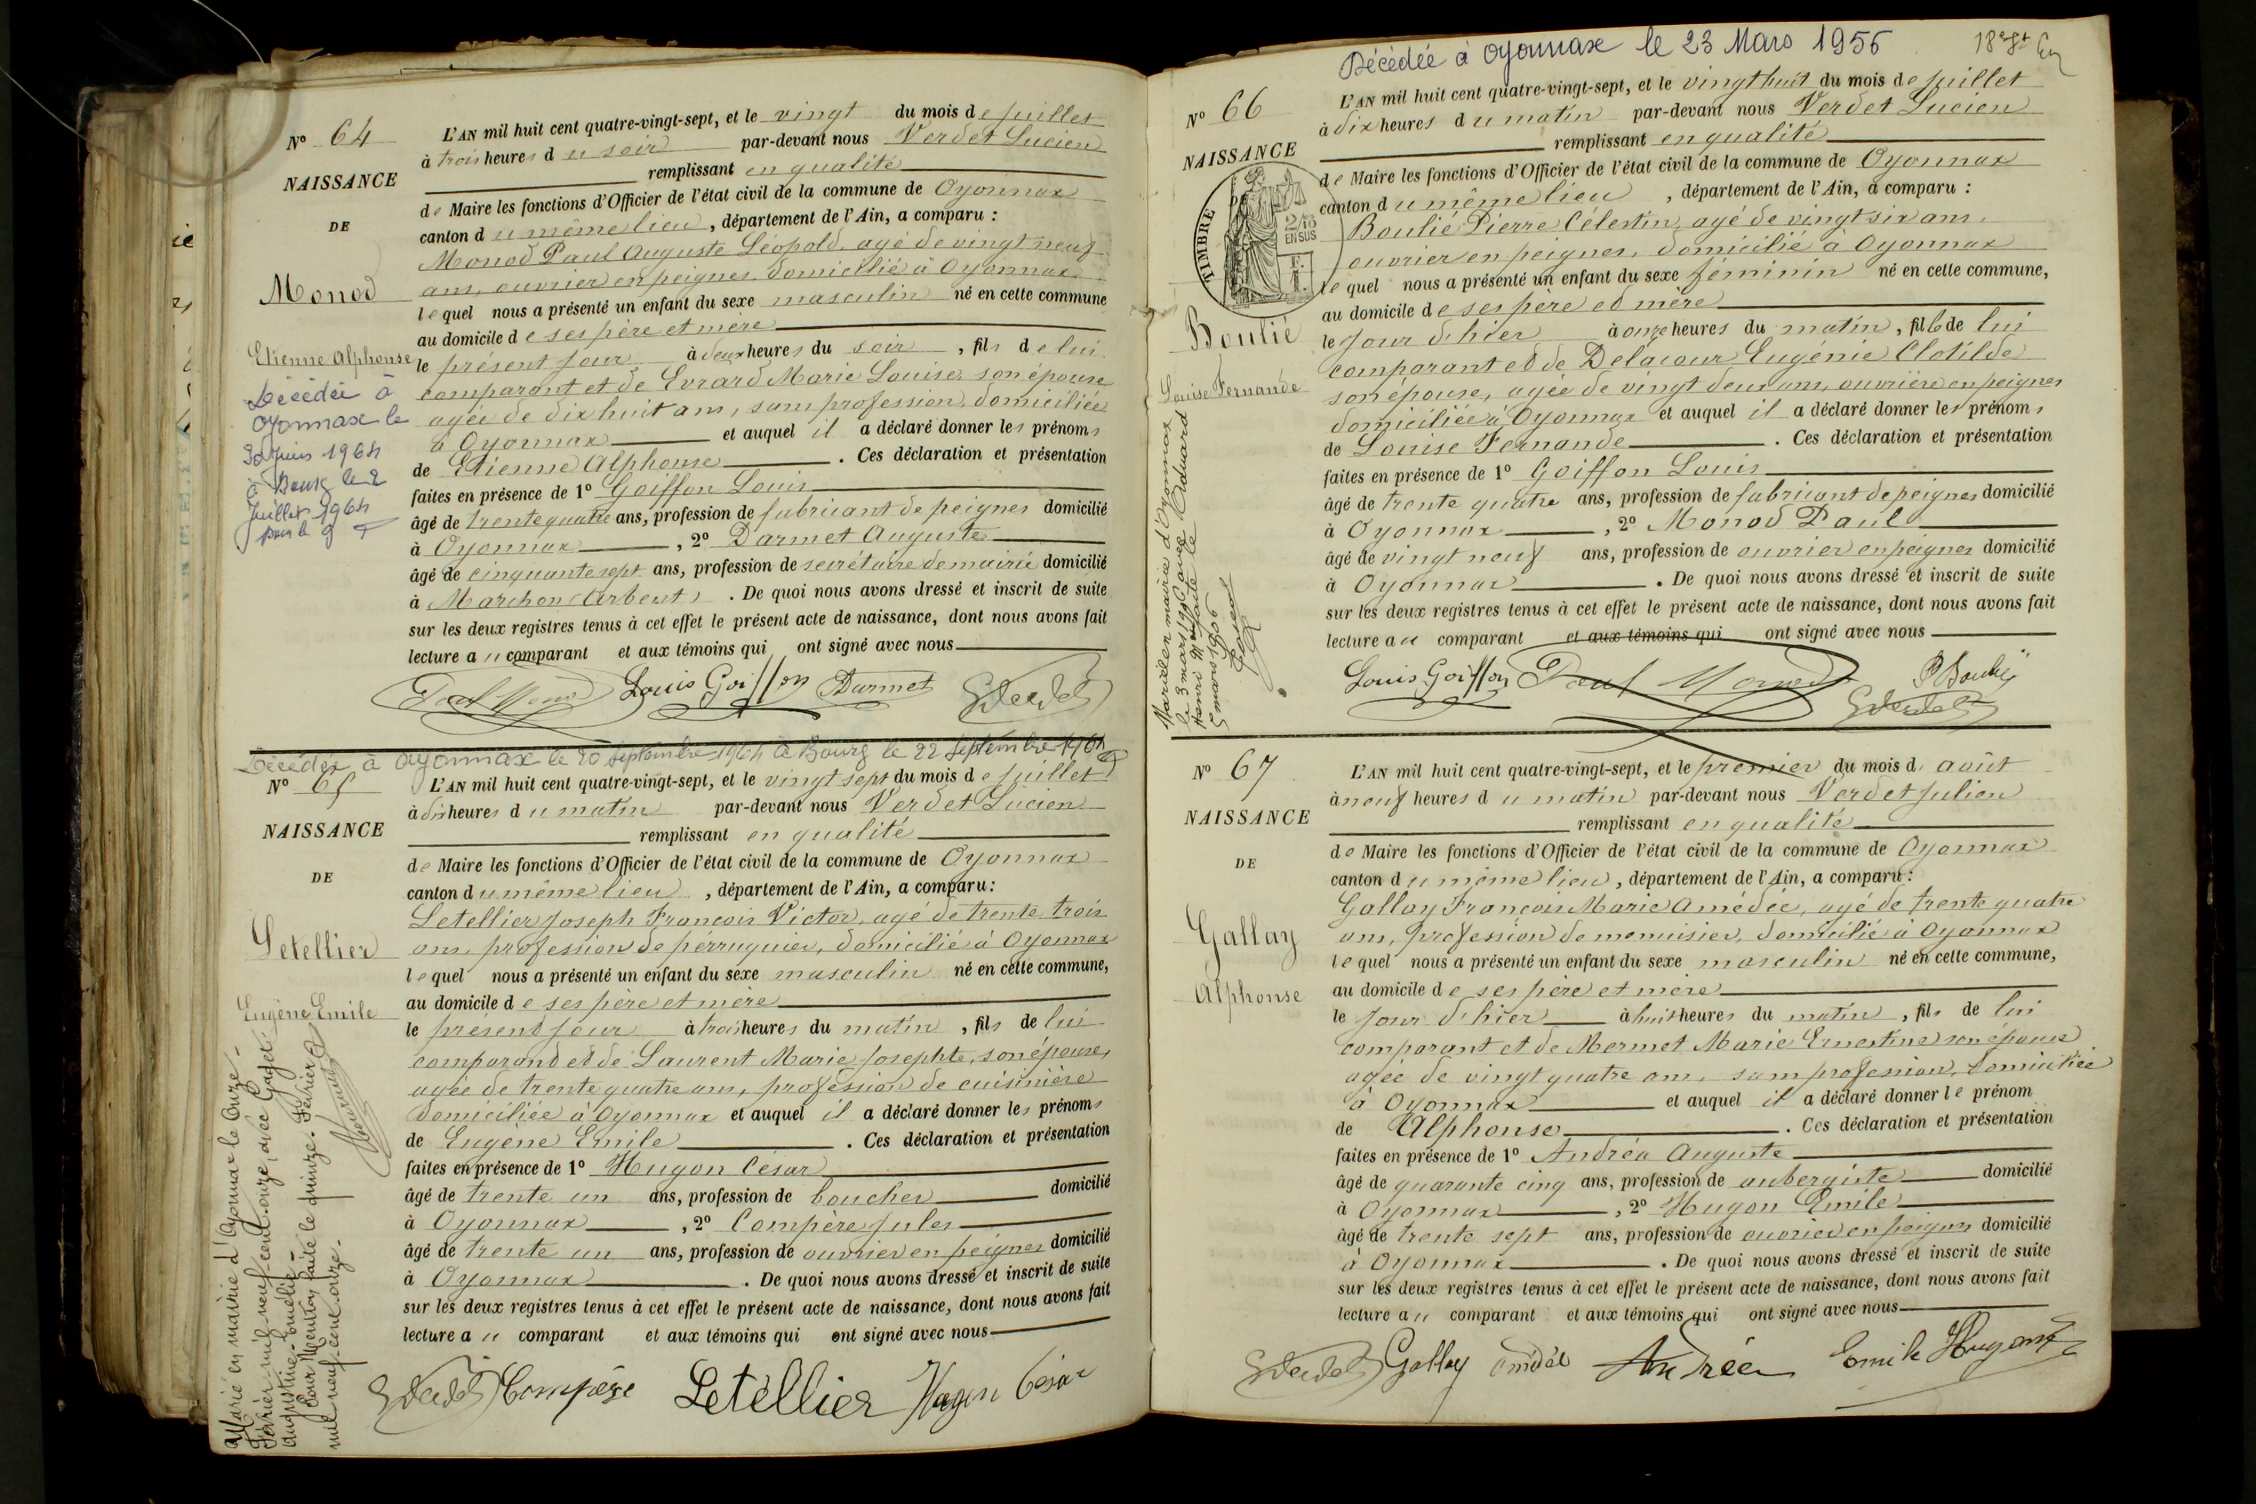 N° 64
NAISSANCE
DE
Monod
Etienne Alphonse
Décédée à
Oyonnax le
30 Juin 1964
à Bourg le 2
Juillet 1964
L'AN mil huit cent quatre-vingt-sept, et le vingt du mois de Juillet
à trois heures du soir par-devant nous Verdet Lucien
remplissant en qualité
de Maire les fonctions d'Officier de l'état civil de la commune de Oyonnax
canton du même lieu, département de l'Ain, a comparu :
Monod Paul Auguste Léopold, agé de vingt neuf
ans, ouvrier en peignes domicilié à Oyonnax
lequel nous a présenté un enfant du sexe masculin né en cette commune
au domicile de ses père et mère
le présent jour à deux heures du soir, fils de lui
comparant et de Evrard Marie Louise, son épouse
agée de dix huit ans, sans profession, domiciliée
à Oyonnax et auquel il a déclaré donner les prénoms
de Etienne Alphonse. Ces déclaration et présentation
faites en présence de 1° Goiffon Louis
âgé de trente quatre ans, profession de fabricant de peignes domicilié
à Oyonnax, 2° Darmet Auguste
âgé de cinquante sept ans, profession de secrétaire de mairie domicilié
à Marchon (Arbent). De quoi nous avons dressé et inscrit de suite
sur les deux registres tenus à cet effet le présent acte de naissance, dont nous avons fait
lecture au comparant et aux témoins qui ont signé avec nous
Paul Monod Louis Goiffon Darmet Verdet
Décédé à Oyonnax le 20 septembre 1964 à Bourg le 22 septembre 1964
N° 65
NAISSANCE
DE
Letellier
Eugène Emile
Marié en mairie d'Oyonnax le onze
Février mil neuf-cent-onze, avec Gaget
Augustine-Emélie-
Pour Mention faite le quinze Février
mil neuf-cent-onze-
L'AN mil huit cent quatre-vingt-sept, et le vingt sept du mois de Juillet
à dix heures du matin par-devant nous Verdet Lucien
remplissant en qualité
de Maire les fonctions d'Officier de l'état civil de la commune de Oyonnax
canton du même lieu, département de l'Ain, a comparu :
Letellier Joseph François Victor, agé de trente trois
ans, profession de perruquier, domicilié à Oyonnax
lequel nous a présenté un enfant du sexe masculin né en cette commune,
au domicile de ses père et mère
le présent jour à trois heures du matin, fils de lui
comparant et de Laurent Marie Josephte, son épouse,
agée de trente quatre ans, profession de cuisinière
domiciliée à Oyonnax et auquel il a déclaré donner les prénoms
de Eugène Emile. Ces déclaration et présentation
faites en présence de 1° Hugon César
âgé de trente un ans, profession de boucher domicilié
à Oyonnax, 2° Compère Jules
âgé de trente un ans, profession de ouvrier en peignes domicilié
à Oyonnax. De quoi nous avons dressé et inscrit de suite
sur les deux registres tenus à cet effet le présent acte de naissance, dont nous avons fait
lecture au comparant et aux témoins qui ont signé avec nous
Verdet Compère Letellier Hugon César
Décédée à Oyonnax le 23 Mars 1956
N° 66
NAISSANCE
DE
TIMBRE
EN SUS
Boulié
Louise Fernande
Mariée en mairie d'Oyonnax
le 3 mars 1906 avec Eduard
Henri Mon faite le
5 mars 1906
L'AN mil huit cent quatre-vingt-sept, et le vingt huit du mois de Juillet
à dix heures du matin par-devant nous Verdet Lucien
remplissant en qualité
de Maire les fonctions d'Officier de l'état civil de la commune de Oyonnax
canton du même lieu, département de l'Ain, a comparu :
Boulié Pierre Célestin, agé de vingt six ans,
ouvrier en peignes, domicilié à Oyonnax
lequel nous a présenté un enfant du sexe féminin né en cette commune,
au domicile de ses père et mère
le jour d'hier à onze heures du matin, fille de lui
comparant et de Delacour Eugénie Clotilde
son épouse, agée de vingt deux ans, ouvrière en peignes
domiciliée à Oyonnax et auquel il a déclaré donner les prénoms
de Louise Fernande. Ces déclaration et présentation
faites en présence de 1° Goiffon Louis
âgé de trente quatre ans, profession de fabricant de peignes domicilié
à Oyonnax, 2° Monod Paul
âgé de vingt neuf ans, profession de ouvrier en peignes domicilié
à Oyonnax. De quoi nous avons dressé et inscrit de suite
sur les deux registres tenus à cet effet le présent acte de naissance, dont nous avons fait
lecture au comparant et aux témoins qui ont signé avec nous
Louis Goiffon Paul Monod P Boulié
Verdet
N° 67
NAISSANCE
DE
Gallay
Alphonse
L'AN mil huit cent quatre-vingt-sept, et le premier du mois d'août
à neuf heures du matin par-devant nous Verdet Julien
remplissant en qualité
de Maire les fonctions d'Officier de l'état civil de la commune de Oyonnax
canton du même lieu, département de l'Ain, a comparu :
Gallay François Marie Amédée, agé de trente quatre
ans, profession de menuisier, domicilié à Oyonnax
lequel nous a présenté un enfant du sexe masculin né en cette commune,
au domicile de ses père et mère
le jour d'hier à huit heures du matin, fils de lui
comparant et de Mermet Marie Ernestine son épouse
agée de vingt quatre ans, sans profession, domiciliée
à Oyonnax et auquel il a déclaré donner le prénom
de Alphonse. Ces déclaration et présentation
faites en présence de 1° Andréa Auguste
âgé de quarante cinq ans, profession de aubergiste domicilié
à Oyonnax, 2° Hugon Emile
âgé de trente sept ans, profession de ouvrier en peignes domicilié
à Oyonnax. De quoi nous avons dressé et inscrit de suite
sur les deux registres tenus à cet effet le présent acte de naissance, dont nous avons fait
lecture au comparant et aux témoins qui ont signé avec nous
Verdet Gallay amédée Andréa Emile Hugon